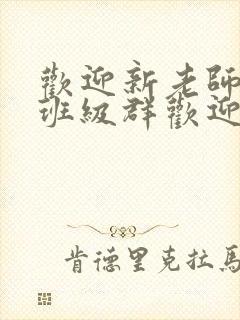 歡迎新老師
班級群歡迎
肯德里克拉馬